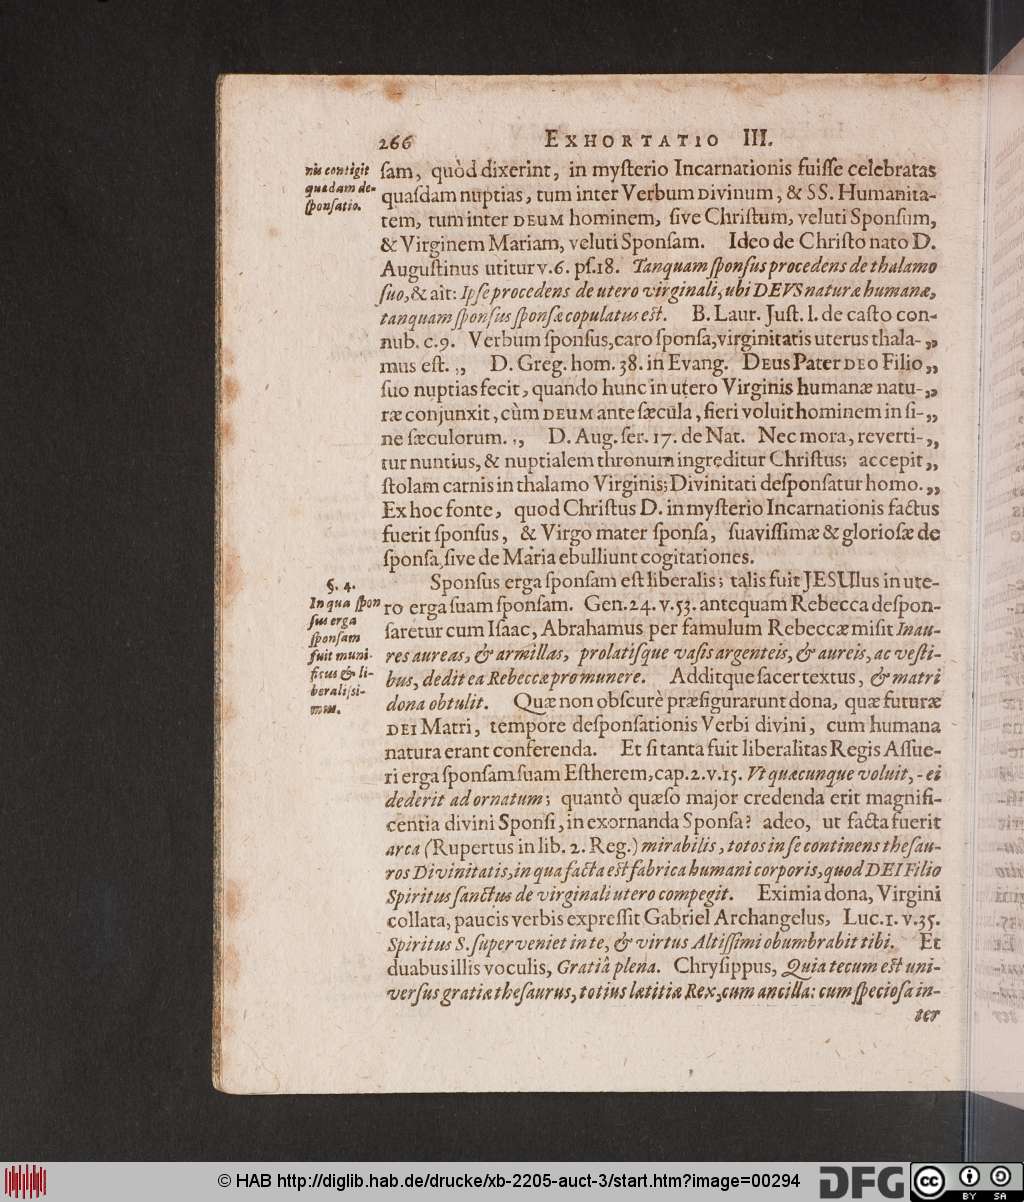 266 EXHORTATIO III.
nis contigit
quædam de-
ſponſatio.
ſam, quòd dixerint, in myſterio Incarnationis fuiſſe celebratas
quaſdam nuptias, tum inter Verbum Divinum, & SS. Humanita-
tem, tum inter DEUM hominem, ſive Chriſtum, veluti Sponſum,
& Virginem Mariam, veluti Sponſam. Ideo de Chriſto nato D.
Auguſtinus utitur v. 6. pſ. 18. Tanquam ſponſus procedens de thalamo
ſuo, & ait: Ipſe procedens de utero virginali, ubi DEVS naturæ humanæ,
tanquam ſponſus ſponſæ copulatus eſt. B. Laur. Juſt. l. de caſto con-
nub. c. 9. Verbum ſponſus, caro ſponſa, virginitatis uterus thala- „
mus eſt. „ D. Greg. hom. 38. in Evang. DEUS Pater DEO Filio „
ſuo nuptias fecit, quando hunc in utero Virginis humanæ natu- „
ræ conjunxit, cùm DEUM ante ſæcula, fieri voluit hominem in fi- „
ne ſæculorum. „ D. Aug. ſer. 17. de Nat. Nec mora, reverti- „
tur nuntius, & nuptialem thronum ingreditur Chriſtus; accepit „
ſtolam carnis in thalamo Virginis; Divinitati deſponſatur homo. „
Ex hoc fonte, quod Chriſtus D. in myſterio Incarnationis factus
fuerit ſponſus, & Virgo mater ſponſa, ſuaviſſimæ & glorioſæ de
ſponſa, ſive de Maria ebulliunt cogitationes.
§. 4.
In qua ſpon
ſus erga
ſponſam
fuit muni-
ficus & li-
beraliſsi-
mus.
Sponſus erga ſponſam eſt liberalis; talis fuit JESUlus in ute-
ro erga ſuam ſponſam. Gen. 24. v. 53. antequam Rebecca deſpon-
ſaretur cum Iſaac, Abrahamus per famulum Rebeccæ miſit Inau-
res aureas, & armillas, prolatiſque vaſis argenteis, & aureis, ac veſti-
bus, dedit ea Rebeccæ pro munere. Additque ſacer textus, & matri
dona obtulit. Quæ non obſcurè præfigurarunt dona, quæ futuræ
DEI Matri, tempore deſponſationis Verbi divini, cum humana
natura erant conferenda. Et ſi tanta fuit liberalitas Regis Aſſue-
ri erga ſponſam ſuam Eſtherem, cap. 2. v. 15. Vt quæcunque voluit, - ei
dederit ad ornatum; quantò quæſo major credenda erit magnifi-
centia divini Sponſi, in exornanda Sponſa? adeo, ut facta fuerit
arca (Rupertus in lib. 2. Reg.) mirabilis, totos in ſe continens theſau-
ros Divinitatis, in qua facta eſt fabrica humani corporis, quod DEI Filio
Spiritus ſanctus de virginali utero compegit. Eximia dona, Virgini
collata, paucis verbis expreſſit Gabriel Archangelus, Luc. 1. v. 35.
Spiritus S. ſuperveniet in te, & virtus Altiſſimi obumbrabit tibi. Et
duabus illis voculis, Gratiâ plena. Chryſippus, Quia tecum eſt uni-
verſus gratiæ theſaurus, totius lætitiæ Rex, cum ancilla: cum ſpecioſa in-
ter
© HAB http://diglib.hab.de/drucke/xb-2205-auct-3/start.htm?image=00294
DFG
cc BY SA